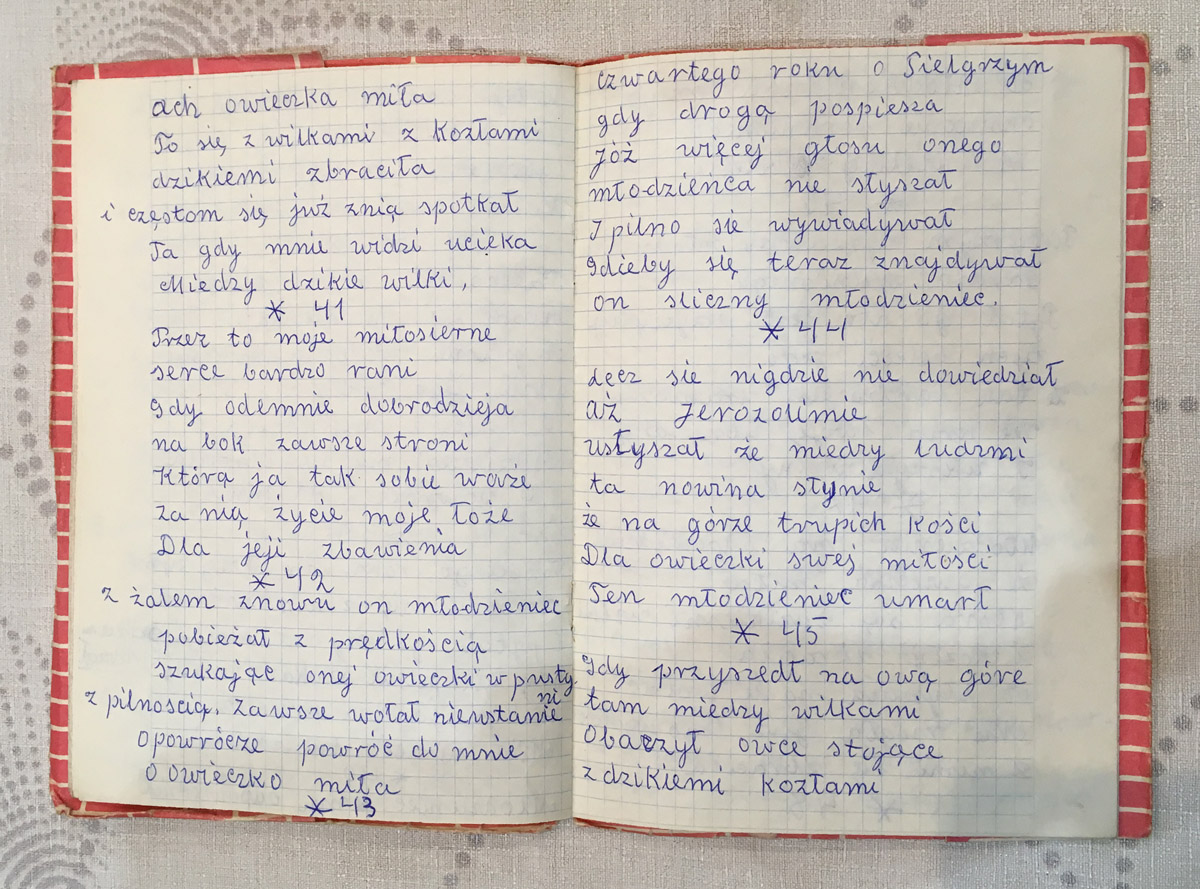 ach owieczka miła
To się z wilkami z kozłami
dzikiemi zbraciła
i częstom się już znią spotkał
Ta gdy mnie widzi ucięka
Miedzy dzikie wilki,
* 41
Przez to moje miłosierne
serce bardzo rani
gdy odemnie dobrodzieja
na bok zawsze stroni
Którą ja tak sobie waże
za nią życie moje łoże
Dla jeji zbawienia
* 42
z żalem znowu on młodzieniec
pobieżał z prędkością
szukając onej owieczki w pusty
ni
z pilnoscią. zawsze wołał nieustanie
o powrócze powróć do mnie
o owieczko miła
* 43
czwartego roku o Pielgrzym
gdy drogą pospiesza
Jóż więcej głosu onego
młodzieńca nie słyszał
I pilno sie wywiadywał
gdieby się teraz znajdywał
on sliczny młodzieniec.
* 44
Lecz sie nigdzie nie dowiedział
aż Jerozolimie
usłyszał że miedzy ludzmi
ta nowina słynie
że na górze trupich kości
Dla owieczki swej miłości
Ten młodzieniec umarł
* 45
gdy przyszedł na ową góre
tam miedzy wilkami
obaczył owce stojące
z dzikiemi kozłami